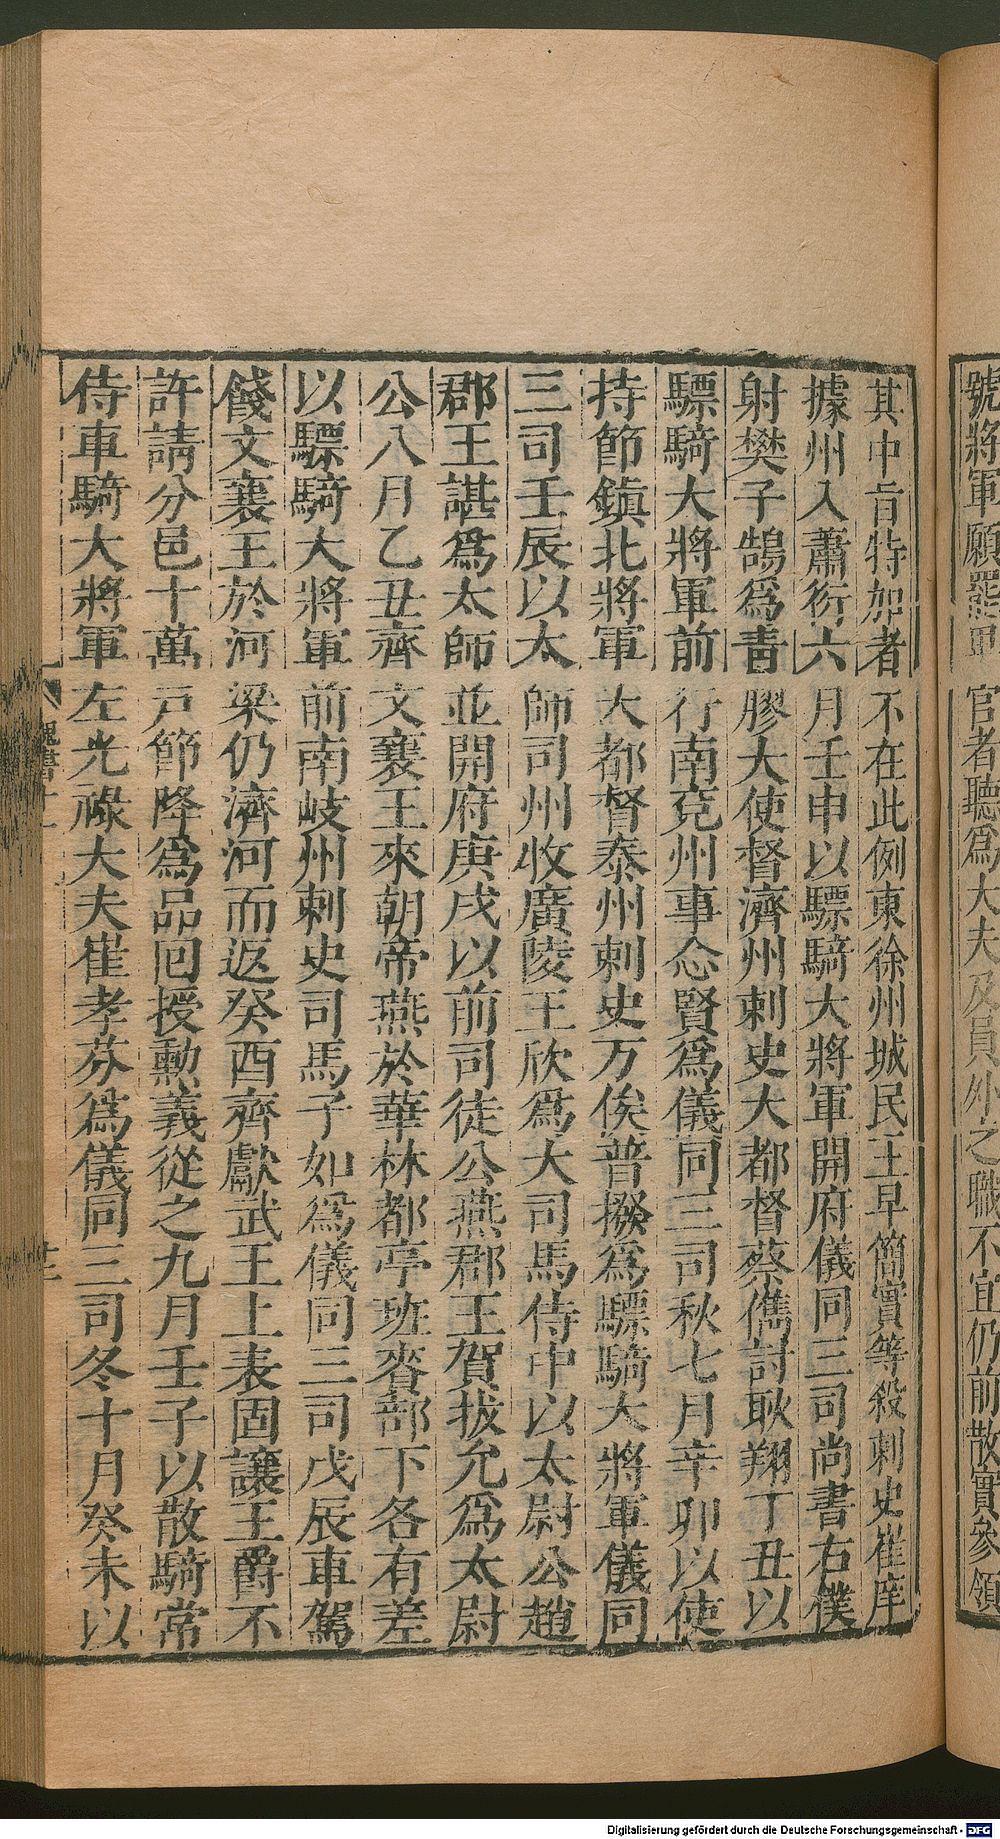 號將軍願罷軍官者聽爲大夫及員外之職不宜仍前散實參領
其中旨特加者不在此例東徐州城民王早簡實等殺刺史崔庠
據州入蕭衍六月壬申以驃騎大將軍開府儀同三司尚書右僕
射樊子鵠爲青膠大使督濟州刺史大都督蔡儁討耿翔丁丑以
驃騎大將軍前行南兗州事念賢爲儀同三司秋七月辛卯以使
持節鎮北將軍大都督泰州刺史万俟普撥爲驃騎大將軍儀同
三司壬辰以太師司州牧廣陵王欣爲大司馬侍中以太尉公趙
郡王諶爲太師並開府庚戌以前司徒公燕郡王賀拔允爲太尉
公八月乙丑齊文襄王來朝帝燕於華林都亭班賚部下各有差
以驃騎大將軍前南岐州刺史司馬子如爲儀同三司戊辰車駕
餞文襄王於河梁仍濟河而返癸酉齊獻武王上表固讓王爵不
許請分邑十萬戸節降爲品回授勳義從之九月壬子以散騎常
侍車騎大將軍左光祿大夫崔孝芬爲儀同三司冬十月癸未以
魏書十一
Digitalisierung gefördert durch die Deutsche Forschungsgemeinschaft - DFG